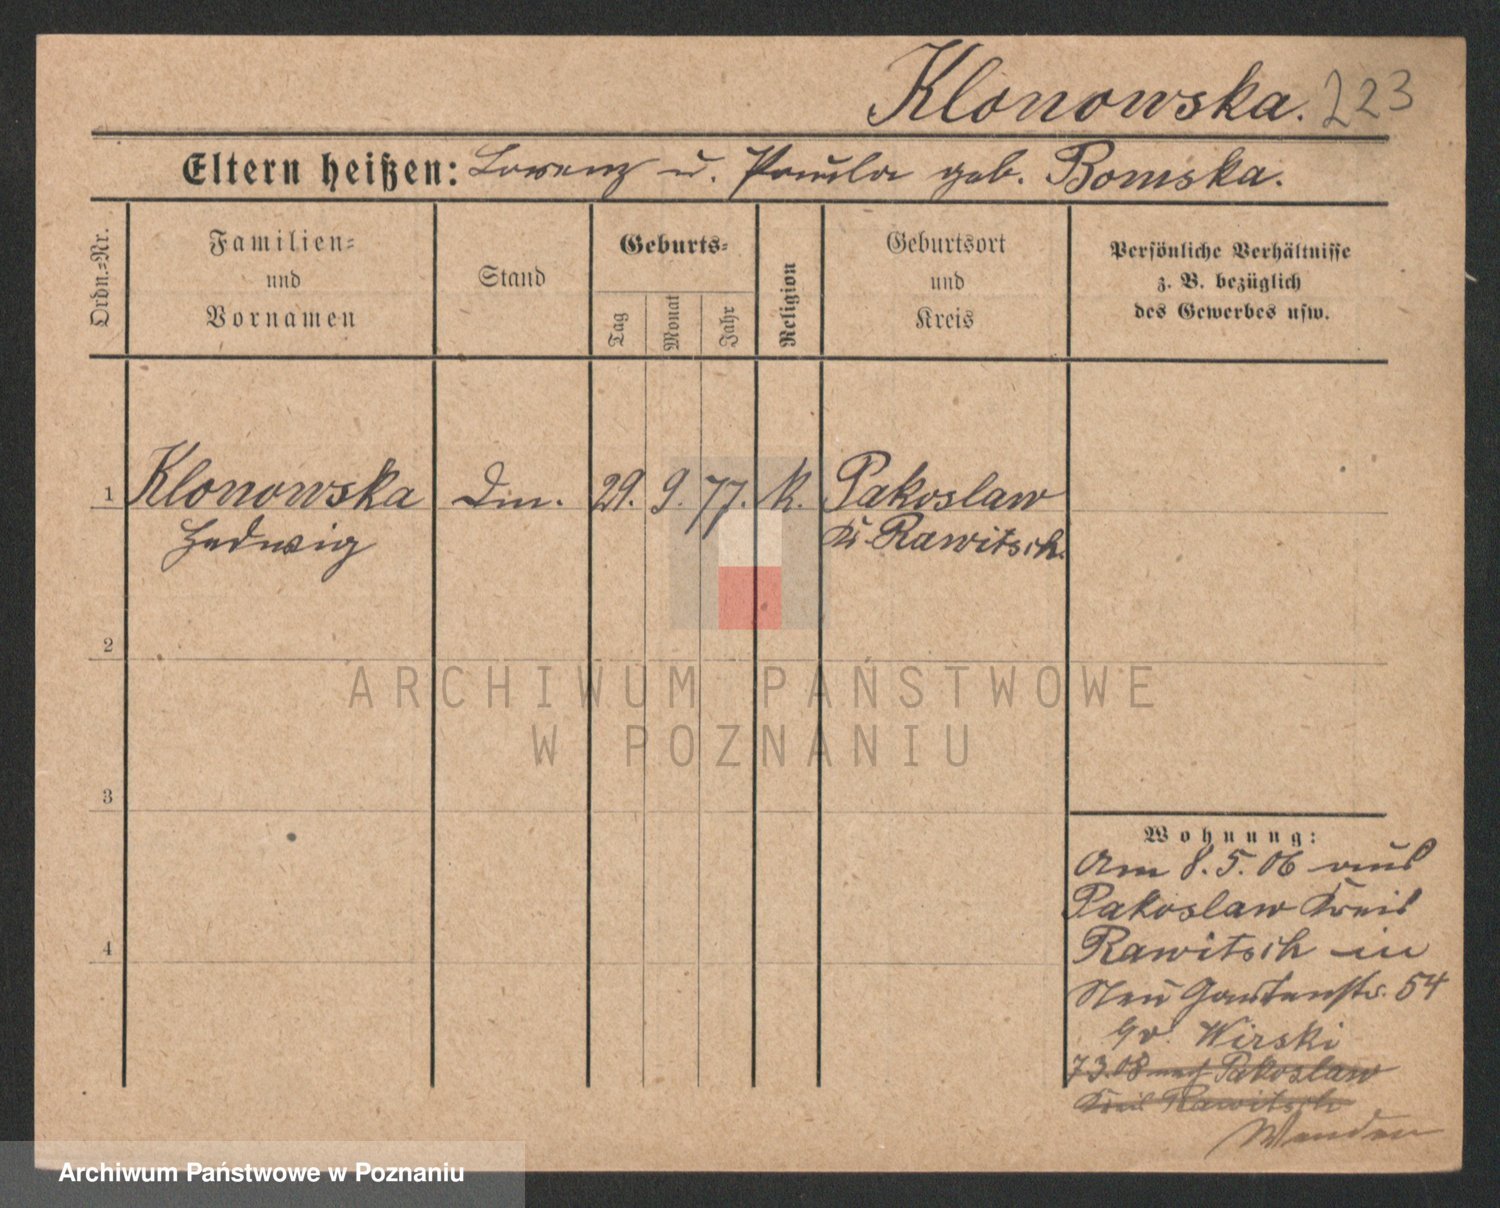 Klonowska. 223
Eltern heißen: Lorenz u. Paula geb. Bomska.
Ordn.=Nr.
Familien=
und
Vornamen
Stand
Geburts=
Tag
Monat
Jahr
Religion
Geburtsort
und
Kreis
Persönliche Verhältnisse
z. B. bezüglich
des Gewerbes usw.
1 Klonowska Din. 29. 9. 77. k. Pakoslaw
Hedwig Kr. Rawitsch.
2
3
4
Wohnung:
Am 8.5.06 aus
Pakoslaw Kreis
Rawitsch in
Neu Gartenstr. 54
Wirski
7 3.08 nach Pakoslaw
Kreis Rawitsch
Wenden
ARCHIWUM PAŃSTWOWE
W POZNANIU
Archiwum Państwowe w Poznaniu